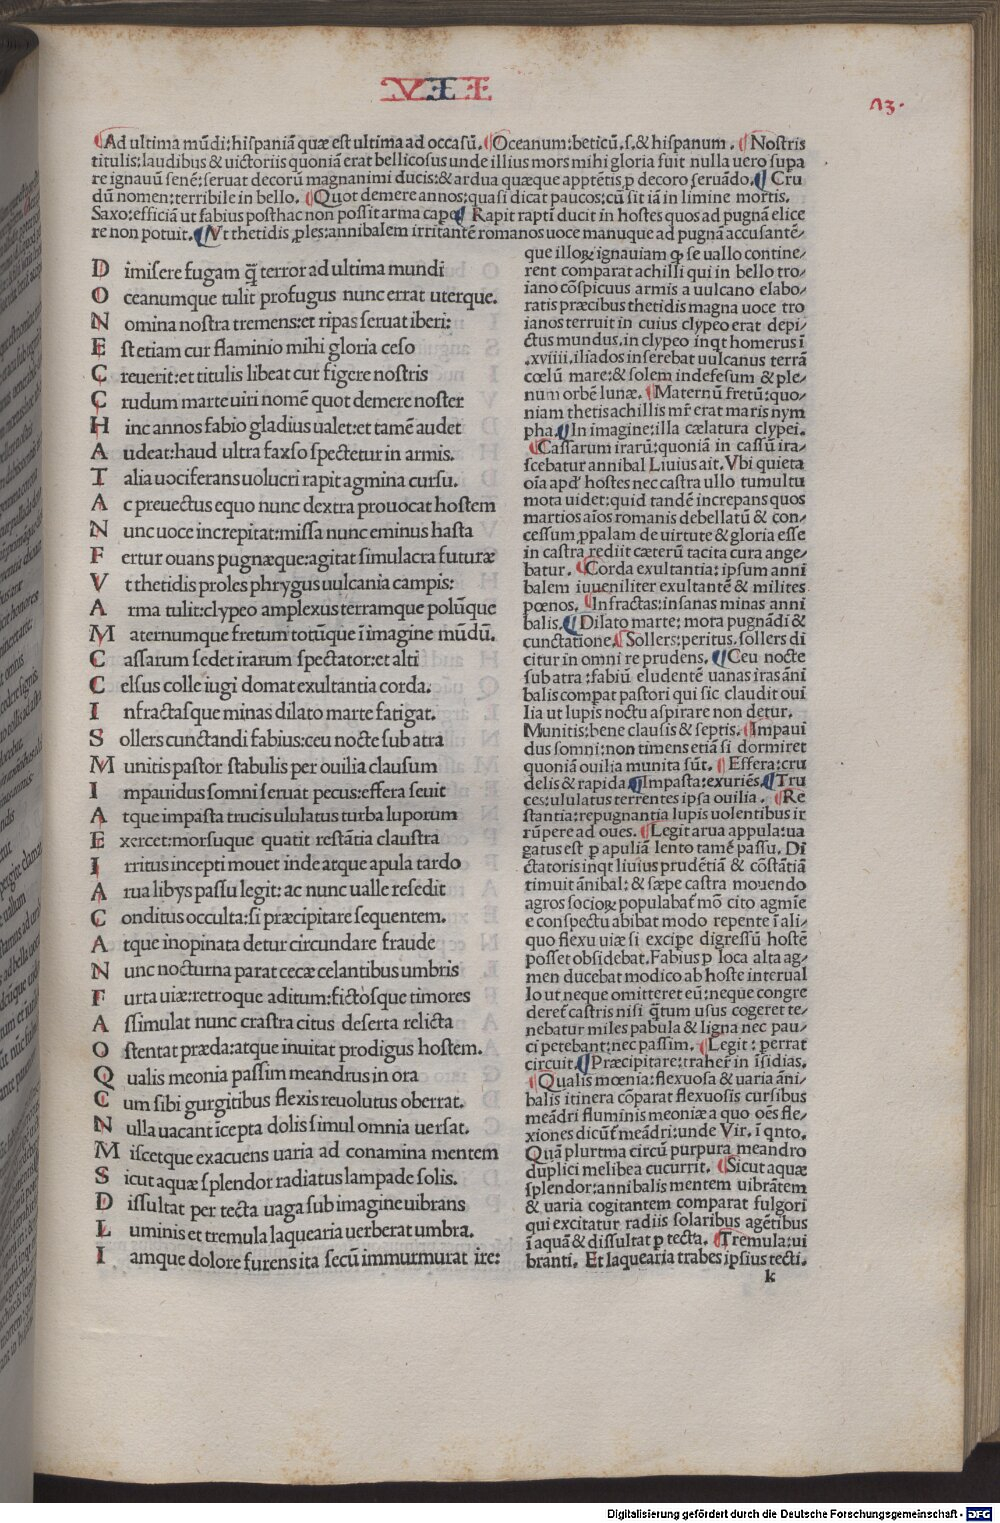 VII
73.
¶Ad ultima mūdi:hispaniā quæ est ultima ad occasū.¶Oceanum:beticū.s.& hispanum. ¶Nostris
titulis:laudibus & uictoriis quoniā erat bellicosus unde illius mors mihi gloria fuit nulla uero supa
re ignauū senē:seruat decorū magnanimi ducis:& ardua quæque apptētis p decoro seruādo.¶ Cru
dū nomen:terribile in bello. ¶Quot demere annos:quasi dicat paucos:cū sit iā in limine mortis.
Saxo:efficiā ut fabius posthac non possit arma cape¶ Rapit rapti ducit in hostes quos ad pugnā elice
re non potuit.¶Vt thetidis ples:annibalem irritantē romanos uoce manuque ad pugnā accusantē/
D imisere fugam q̄ terror ad ultima mundi
O ceanumque tulit profugus nunc errat uterque.
N omina nostra tremens:et ripas seruat iberi:
E st etiam cur flaminio mihi gloria ceso
C reuerit:et titulis libeat cur figere nostris
C rudum marte uiri nomē quot demere noster
H inc annos fabio gladius ualet:et tamē audet
A udeat:haud ultra faxso spectetur in armis.
T alia uociferans uolucri rapit agmina cursu.
A c preuectus equo nunc dextra prouocat hostem
N unc uoce increpitat:missa nunc eminus hasta
F ertur ouans pugnæque:agitat simulacra futuræ
V t thetidis proles phrygus uulcania campis:
A rma tulit:clypeo amplexus terramque polūque
M aternumque fretum totūque ī imagine mūdū.
C assarum sedet irarum spectator:et alti
C elsus colle iugi domat exultantia corda.
I nfractasque minas dilato marte fatigat.
S ollers cunctandi fabius:ceu nocte sub atra
M unitis pastor stabulis per ouilia clausum
I mpauidus somni seruat pecus:effera seuit
A tque impasta trucis ululatus turba luporum
E xercet:morsuque quatit restātia claustra
I rritus incepti mouet inde atque apula tardo
A rua libys passu legit: ac nunc ualle resedit
C onditus occulta:si præcipitare sequentem.
A tque inopinata detur circundare fraude
N unc nocturna parat cecæ celantibus umbris
F urta uiæ:retroque aditum:fictosque timores
A ssimulat nunc crastra citus deserta relicta
O stentat præda:atque inuitat prodigus hostem.
Q ualis meonia passim meandrus in ora
C um sibi gurgitibus flexis reuolutus oberrat.
N ulla uacant īcepta dolis simul omnia uersat.
M iscetque exacuens uaria ad conamina mentem
S icut aquæ splendor radiatus lampade solis.
D issultat per tecta uaga sub imagine uibrans
L uminis et tremula laquearia uerberat umbra.
I amque dolore furens ita secū immurmurat ire:
que illoꝝ ignauiam qp se uallo contine/
rent comparat achilli qui in bello tro/
iano cōspicuus armis a uulcano elabo/
ratis præcibus thetidis magna uoce tro
ianos terruit in cuius clypeo erat depi/
ctus mundus.in clypeo inqt homerus ī
.xviiii.iliados inserebat uulcanus terrā
cœlū mare:& solem indefesum & ple/
num orbē lunæ. ¶Maternū fretū:quo/
niam thetis achillis mr̄ erat maris nym
pha.¶In imagine:illa cælatura clypei.
¶Cassarum irarū:quoniā in cassū ira/
scebatur annibal Liuius ait.Vbi quieta
oīa apd' hostes nec castra ullo tumultu
mota uidet:quid tandē increpans quos
martios aīos romanis debellatū & con/
cessum ppalam de uirtute & gloria esse
in castra rediit cæterū tacita cura ange/
batur. ¶Corda exultantia: ipsum anni
balem iuueniliter exultantē & milites
pœnos. ¶Infractas:insanas minas anni
balis.¶Dilato marte: mota pugnādi &
cunctatione.¶Sollers:peritus.sollers di
citur in omni re prudens. ¶Ceu nocte
sub atra :fabiū eludentē uanas iras āni
balis compat pastori qui sic claudit oui
lia ut lupis noctu aspirare non detur.
Munitis:bene clausis & septis. ¶Impaui
dus somni:non timens etiā si dormiret
quoniā ouilia munita sūt. ¶Effera:cru
delis & rapida.¶Impasta:exuriēs.¶Tru
ces:ululatus terrentes ipsa ouilia. ¶Re
stantia:repugnantia lupis uolentibus ir
rūpere ad oues. ¶Legit arua appula:ua
gatus est p apuliā lento tamē passu. Di
ctatoris inqt liuius prudētiā & cōstātiā
timuit ānibal: & sæpe castra mouendo
agros socioꝝ populabat' mō cito agmīe
e conspectu abibat modo repente ī ali/
quo flexu uiæ si excipe digressū hostē
posset obsidebat.Fabius p loca alta ag/
men ducebat modico ab hoste interual
lo ut neque omitteret eū:neque congre
deret' castris nisi q̄tum usus cogeret te/
nebatur miles pabula & ligna nec pau/
ci petebant:nec passim. ¶Legit : perrat
circuit.¶Præcipitare:traher̄ in īsidias.
¶Qualis mœnia:flexuosa & uaria āni/
balis itinera cōparat flexuosis cursibus
meādri fluminis meoniæ a quo oēs fle/
xiones dicūt' meādri:unde Vir. ī qnto.
Quā plurtma circū purpura meandro
duplici melibea cucurrit. ¶Sicut aquæ
splendor:annibalis mentem uibrātem
& uaria cogitantem comparat fulgori
qui excitatur radiis solaribus agētibus
ī aquā & dissultat p tecta. ¶Tremula:ui
branti. Et laquearia trabes ipsius tecti.
k
Digitalisierung gefördert durch die Deutsche Forschungsgemeinschaft - DFG